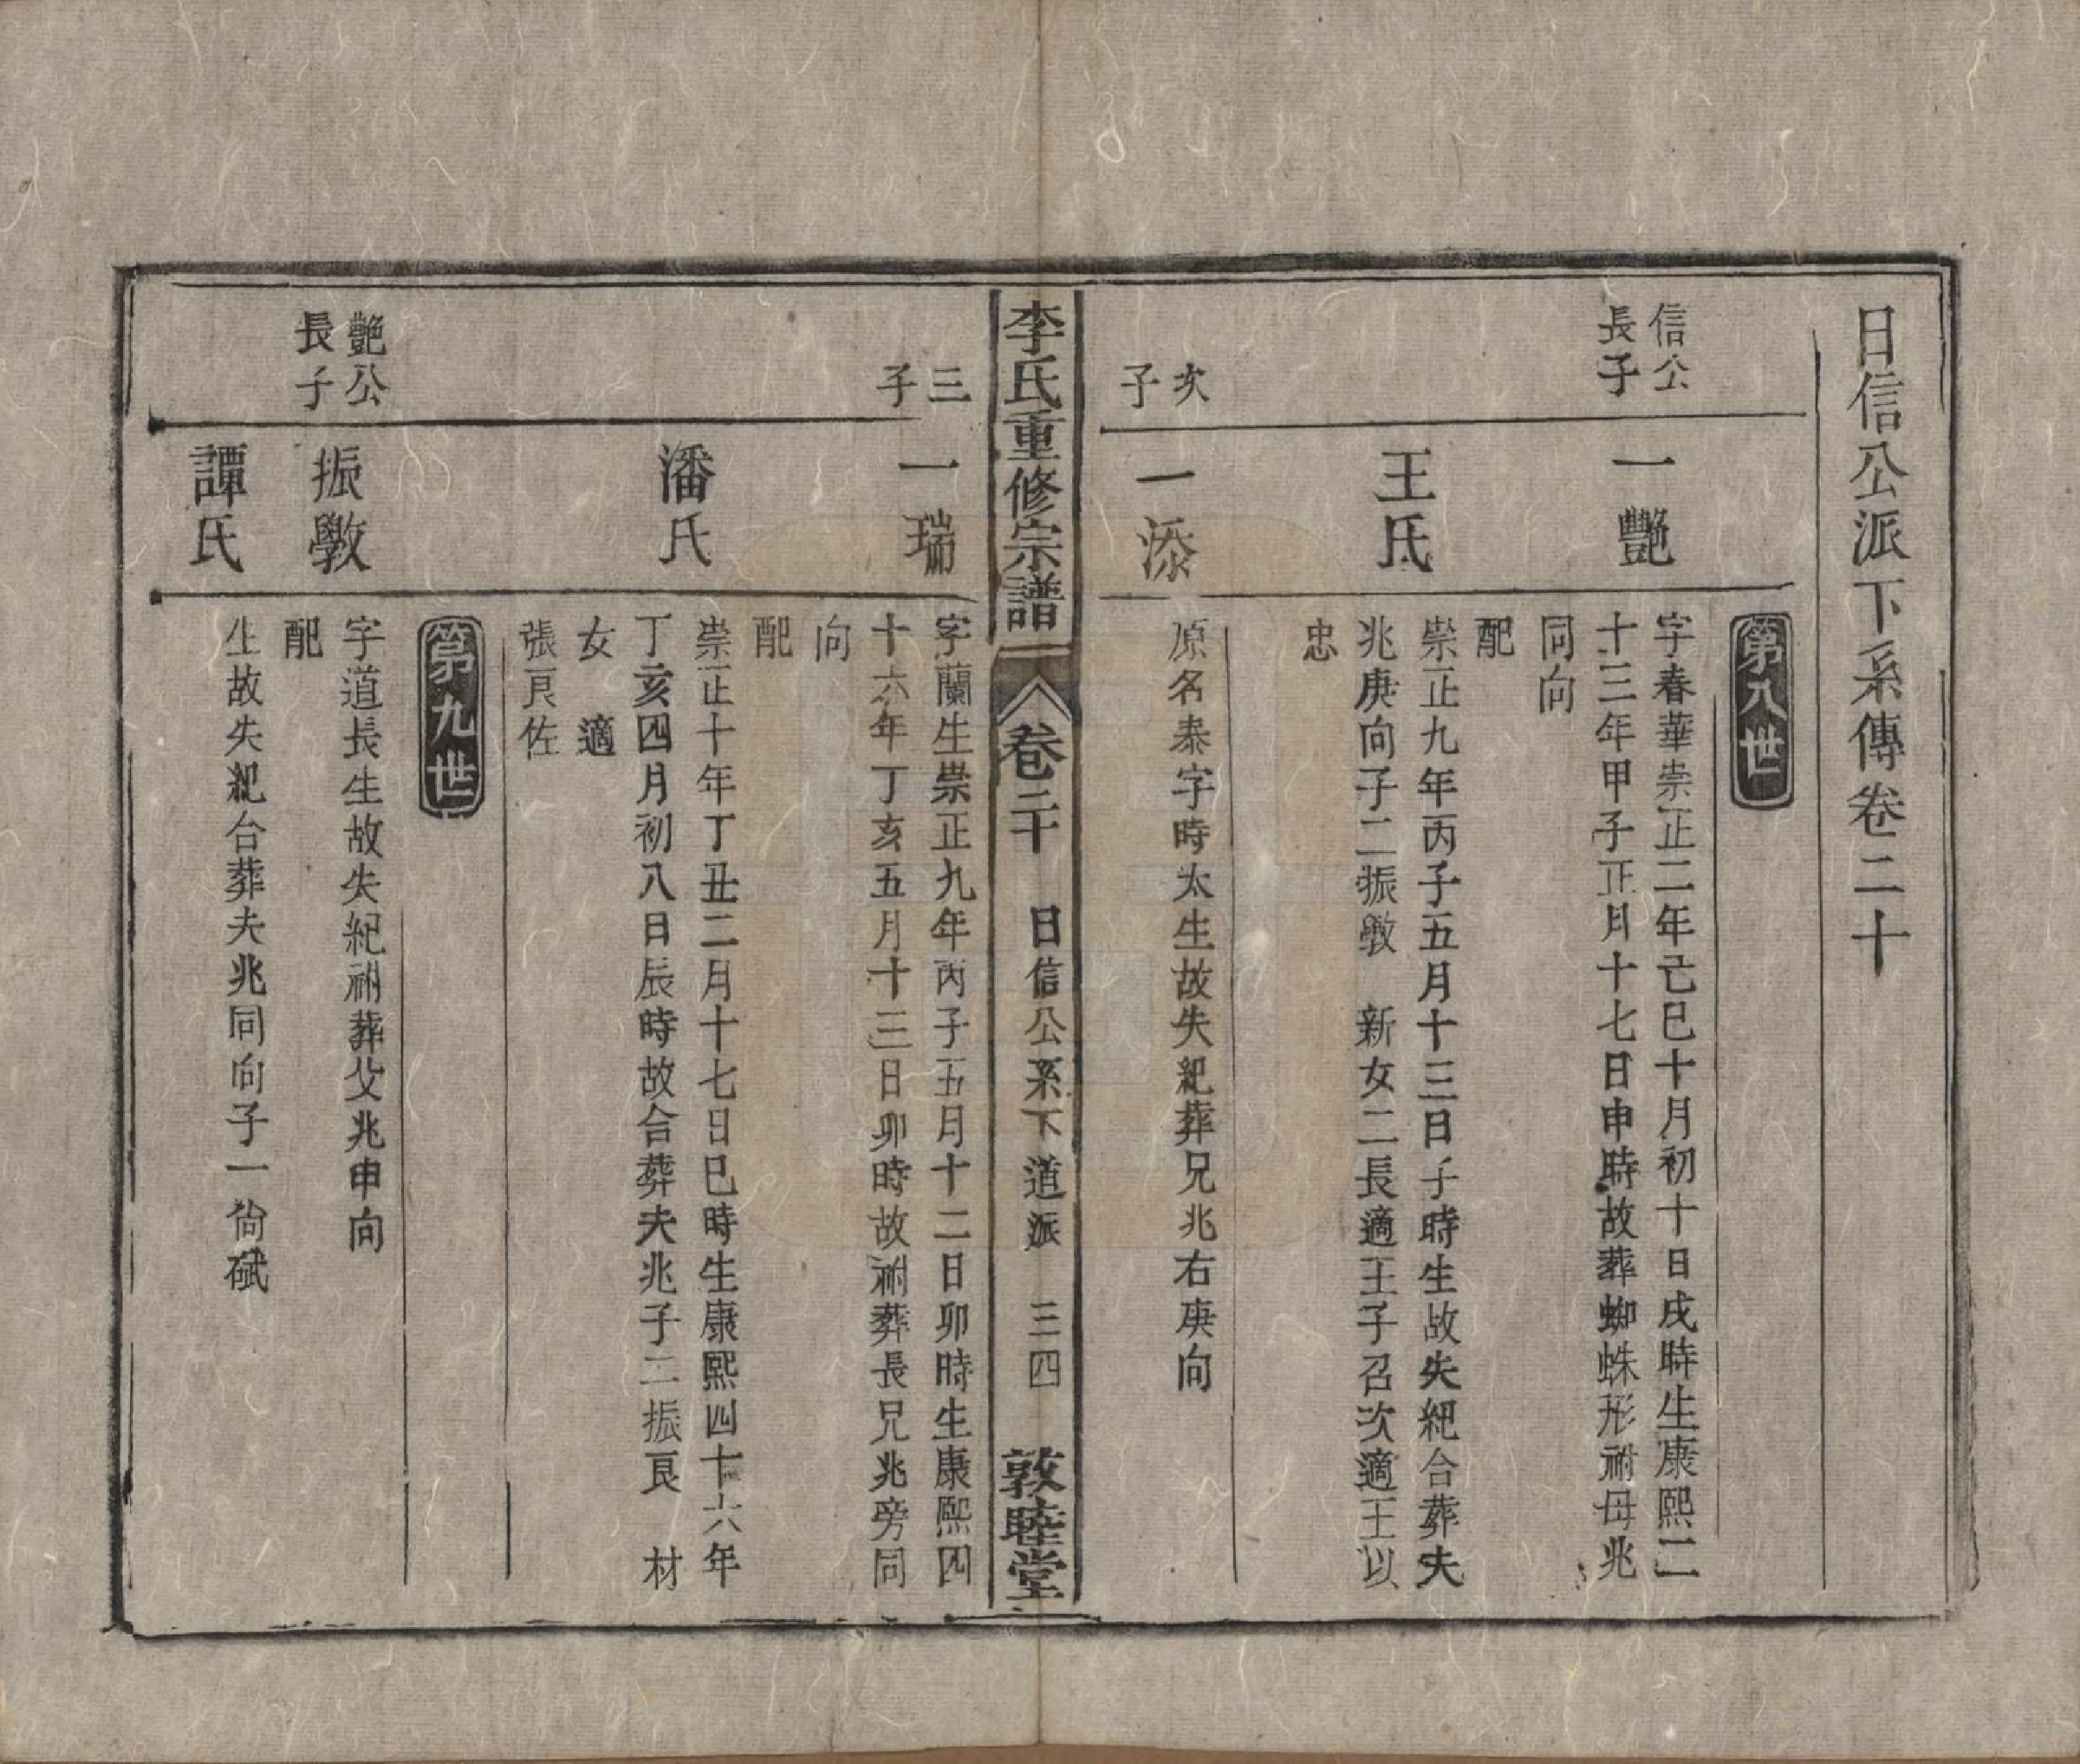 日信公派下系傳卷二十
第八世
信公
長子
一豔
字春華崇正二年己巳十月初十日戌時生康熙二
十三年甲子正月十七日申時故葬蜘蛛形祔母兆
同向
配
王氏
崇正九年丙子五月十三日子時生故失紀合葬夫
兆庚向子二振斆 新女二長適王子召次適王以
忠
次
子
一添
原名泰字時太生故失紀葬兄兆右庚向
李氏重修宗譜
卷二十 日信公系下道派 三四
敦睦堂
三
子
一瑞
字蘭生崇正九年丙子五月十二日卯時生康熙四
十六年丁亥五月十三日卯時故祔葬長兄兆旁同
向
配
潘氏
崇正十年丁丑二月十七日巳時生康熙四十六年
丁亥四月初八日辰時故合葬夫兆子二振良 材
女 適
張良佐
第九世
豔公
長子
振斆
字道長生故失紀祔葬父兆申向
配
譚氏
生故失紀合葬夫兆同向子一尙碔